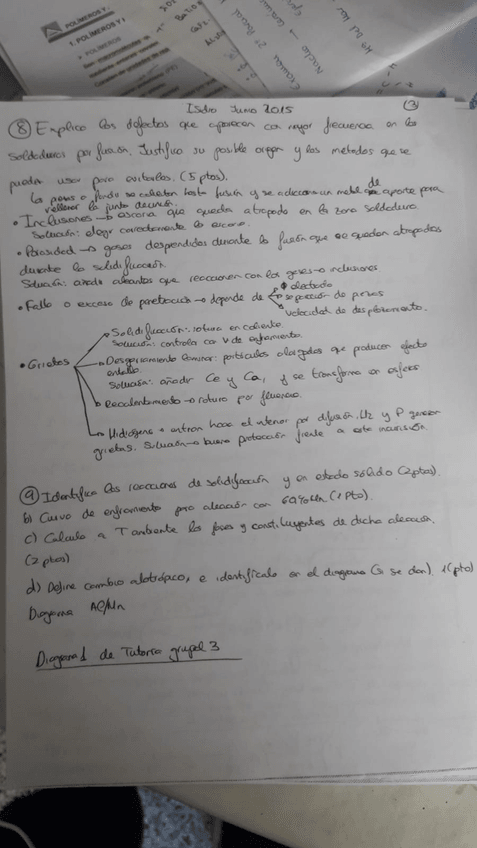 POLÍMEROS Y
1. POLÍMEROS Y
POLÍMEROS
Isdro Junio 2015 (3)
⑧ Explica los defectos que aparecen con mayor frecuencia en las
soldaduras por fusión. Justifica su posible origen y los métodos que se
pueden usar para evitarlos. (5 ptos).
Las piezas a fundir se calientan hasta fusión y se adiciona un metal de aporte para
rellenar la junta de unión.
• Inclusiones → escoria que queda atrapada en la zona soldadura.
Solución: elegir correctamente la escoria.
• Porosidad → gases desprendidos durante la fusión que se quedan atrapados
durante la solidificación.
Solución: añadir aleantes que reaccionen con los gases → inclusiones.
• Falta o exceso de penetración → depende de
φ electrodo
separación de piezas
velocidad de desplazamiento.
• Grietas
Solidificación: rotura en caliente.
Solución: controlar con V de enfriamiento.
Desgarramiento laminar: partículas alargadas que producen efecto
entalla.
Solución: añadir Ce y Ca, y se transforma en esferas
Recalentamiento → rotura por fluencia.
Hidrógeno → entran hacia el interior por difusión. H2 y P generan
grietas. Solución → buena protección frente a esta
⑨ Identifica las reacciones de solidificación y en estado sólido (2 ptos).
b) Curva de enfriamiento para aleación con 60% Mn. (1 Pto).
c) Calcula a T ambiente las fases y constituyentes de dicha aleación.
(2 ptos)
d) Define cambio alotrópico, e identifícalo en el diagrama (si se dan). 1 (pto)
Diagrama Al/Mn
Diagrama 1 de Tutoria grupal 3